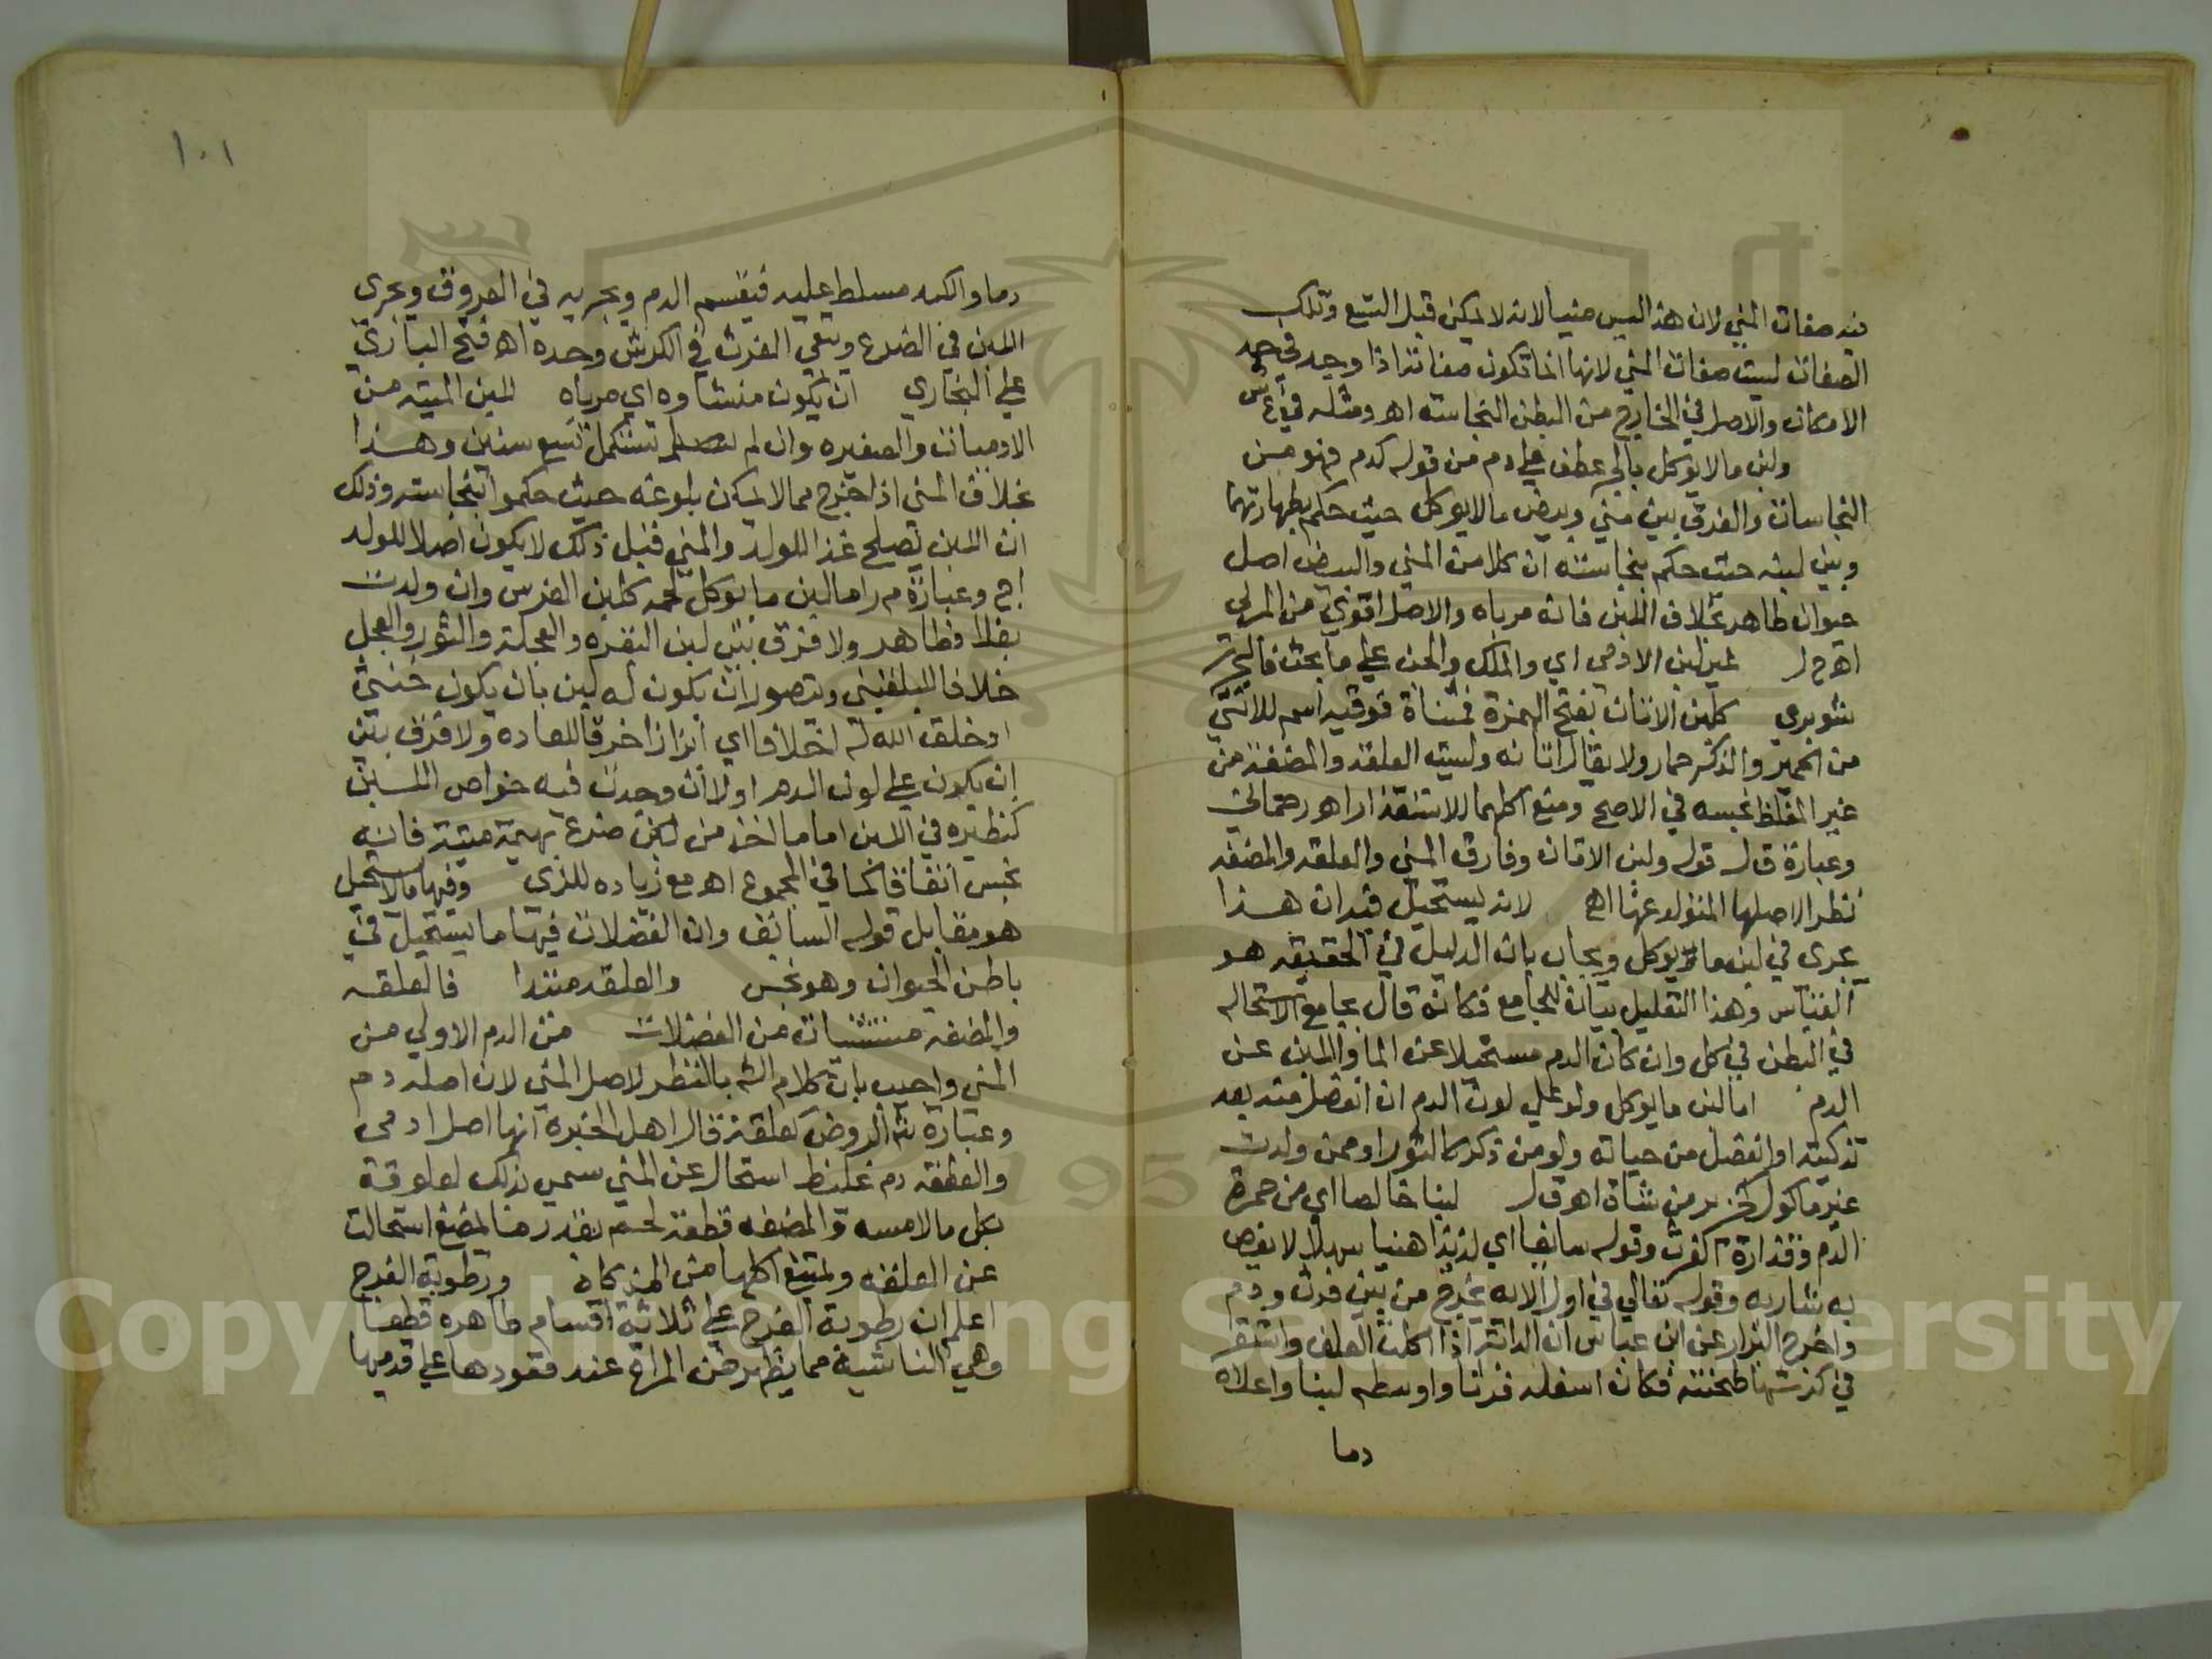 فيه صفات المني لان هذا ليس منيا لانه لا يمكن قبل التسع وتلك
الصفات ليست صفات المني لانها انما تكون صفاته اذا وجد في حد
الامكان والاصل في الخارج من البطن النجاسة اهـ ومثله في ع ش
ولبن ما لا يوكل بالجر عطف على دم من قوله كدم فهو من
النجاسات والفرق بين مني وبيض ما لا يوكل حيث حكم بطهارتهما
وبين لبنه حيث حكم بنجاسته ان كلا من المني والبيض اصل
حيوان طاهر بخلاف اللبن فانه مرباه والاصل اقوى من المربى
اهـ ح ل غير لبن الادمي اي والملك والجن على ما بحث فاليحرر
شوبري كلبن الاتان بفتح الهمزة فمثناة فوقيه اسم للانثى
من الحمير والذكر حمار ولا يقال اتانه وليست العلقه والمضغه من
غير المغلظ نجسه في الاصح ومنع اكلهما للاستقذار اهـ رحماني
وعبارة ق ل قوله ولبن الاتان وفارق المني والعلقه والمضغه
نظرا لاصلها المتولد عنها اهـ لانه يستحيل فيه ان هذا
يجري في لبن ما يوكل ويجاب بان الدليل في الحقيقه هو
القياس وهذا التعليل بيان للجامع فكانه قال بجامع الاستحاله
في البطن في كل وان كان الدم مستحيلا عن الما واللبن عن
الدم اما لبن ما يوكل ولو على لون الدم ان انفصل منه بعد
تذكيته او انفصل من حياته ولو من ذكر كالثور او ممن ولدت
غير ماكول كخنزير من شاة اهـ ق ل لبنا خالصا اي من حمرة
الدم وقذارة الفرث وقوله سائغا اي لذيذا هنيا سهلا لا يغص
به شاربه وقوله تعالي في اول الايه يخرج من بين فرث ودم
واخرج البزار عن ابن عباس ان الدابة اذا اكلت العلف واستقر
في كرشها طحنته فكان اسفله فرثا واوسطه لبنا واعلاه
دما
١٠١
دما والكبد مسلط عليه فيقسم الدم ويجريه في العروق ويجري
اللبن في الضرع ويبقي الفرث في الكرش وحده اهـ فتح الباري
علي البخاري ان يكون منشاوه اي مرباه لبن الميته من
الادميات والصغيره وان لم تستكمل تسع سنين وهذا
بخلاف المني اذا خرج ممن لا يمكن بلوغه حيث حكموا بنجاسته وذلك
ان اللبن يصلح غذا للولد والمني قبل ذلك لا يكون اصلا للولد
اج وعبارة م ر اما لبن ما يوكل لحمه كلبن الفرس وان ولدت
بغلا فطاهر ولا فرق بين لبن البقره والعجلة والثور والعجل
خلافا للبلقيني ويتصور ان يكون له لبن بان يكون خنثي
او خلق الله له اخلافا اي ابزازا خرقا للعاده ولا فرق بين
ان يكون علي لون الدم او لا ان وجدت فيه خواص اللبن
كنظيره في المني اما ما اخذ من ضرع بهيمة ميتة فانه
نجس اتفاقا كما في المجموع اهـ مع زياده للزي وفيها ما لا يستحيل
هو مقابل قوله السابق وان الفضلات فيها ما يستحيل في
باطن الحيوان وهو نجس والعلقه مبتدا فالعلقه
والمضغه مستثنيات من الفضلات من الدم الاولي من
المني واجيب بان كلام الشه بالنظر لاصل المني لان اصله دم
وعبارة شه الروض كعلقة قال اهل الخبره انها اصل ادمي
والعلقه دم غليظ استحال عن المني سمي بذلك لعلوقة
بكل ما لامسه والمضغه قطعة لحم بقدر ما يمضغ استحالت
عن العلقه ويمتنع اكلها من المذكاة ورطوبة الفرج
اعلم ان رطوبة الفرج علي ثلاثة اقسام طاهره قطعا
وهي الناشية مما يظهر من المراة عند قعودها علي قدميها
Copyright © King Saud University
195